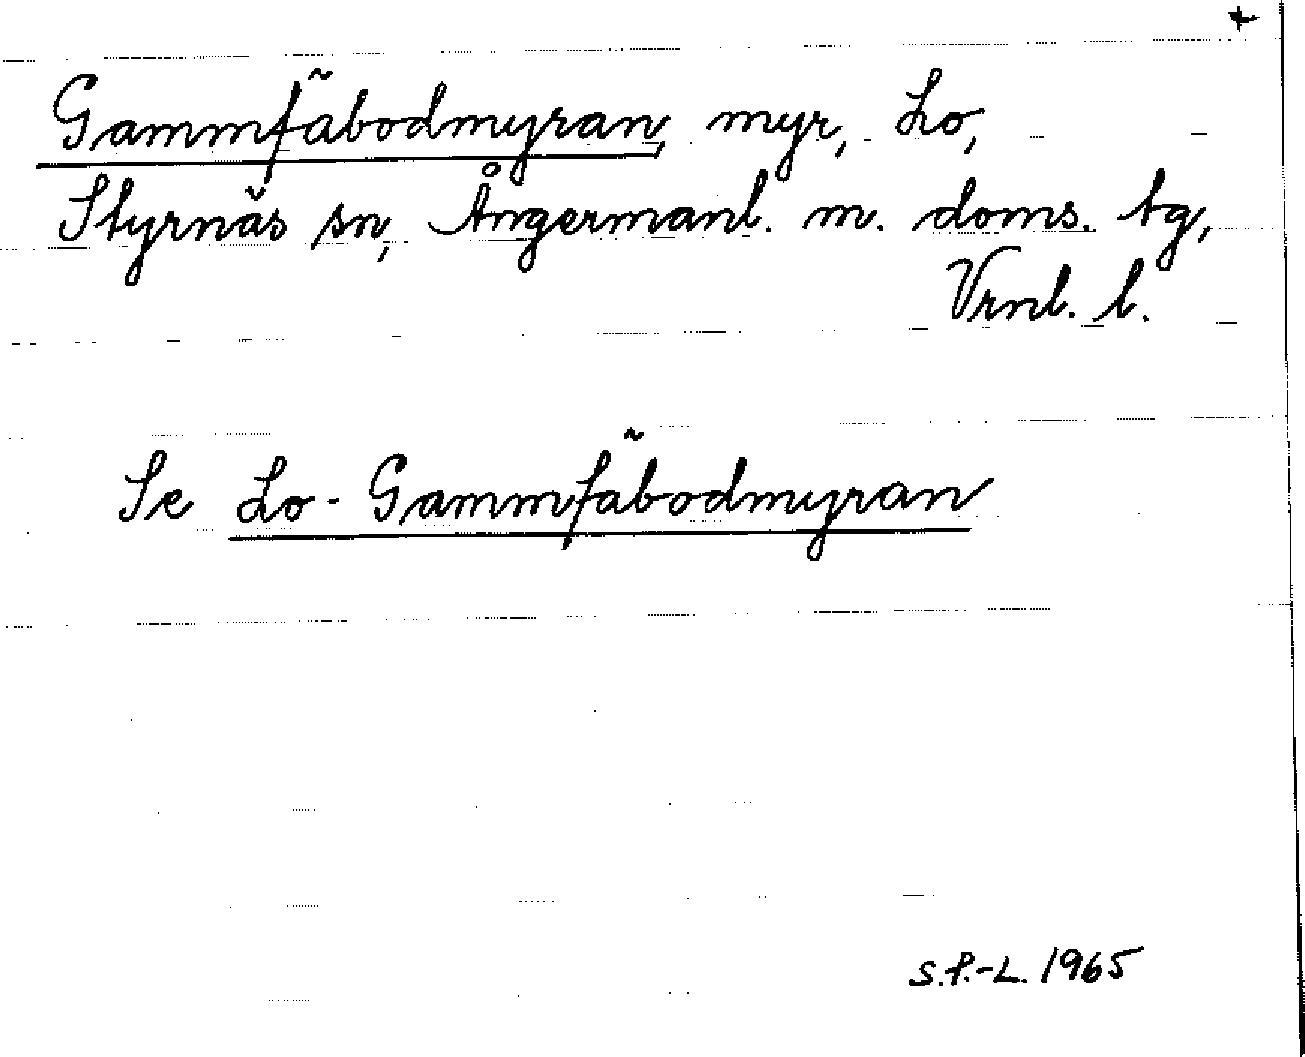 +
Gammfäbodmyran, myr, Lo,
Styrnäs sn, Ångermanl. m. doms. tg,
Vrnl. l.
Se Lo-Gammfäbodmyran
S.P.-L. 1965